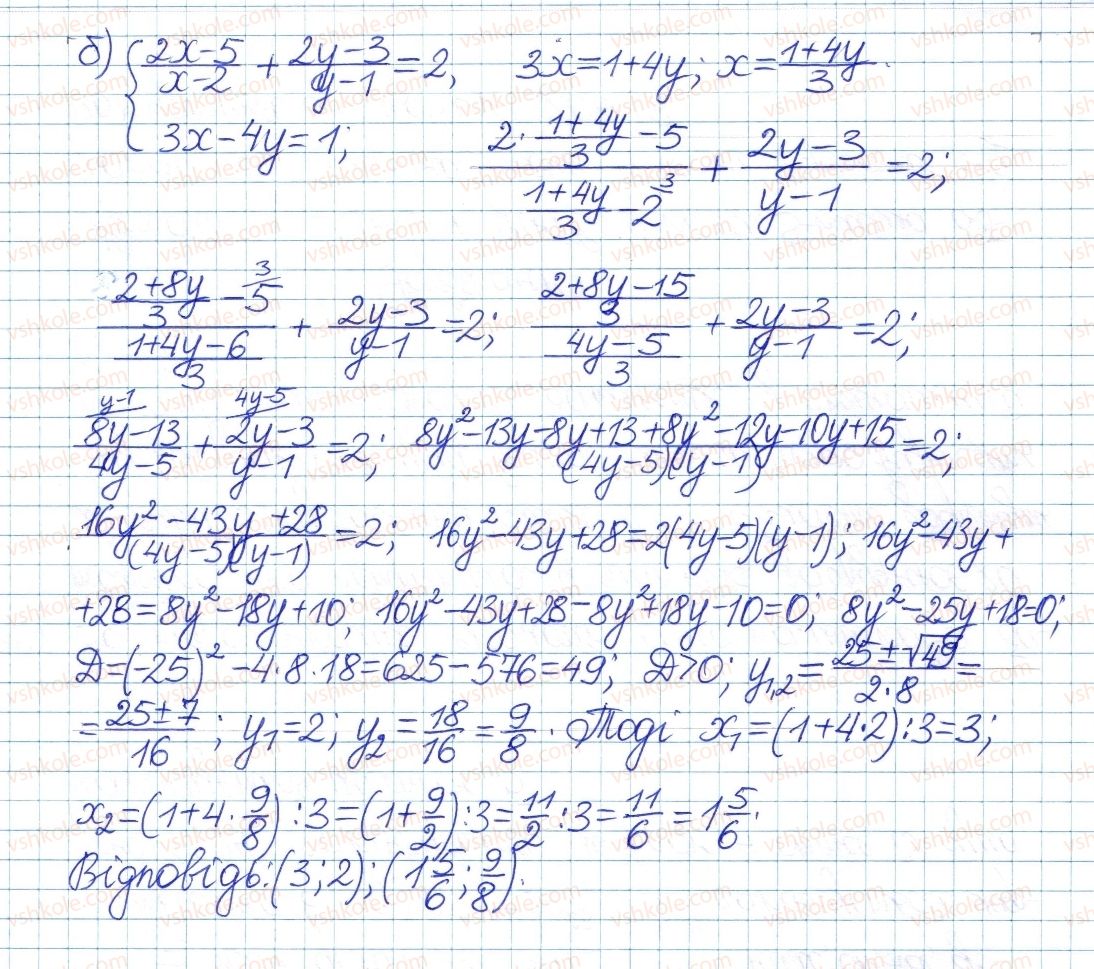 б) { (2x-5)/(x-2) + (2y-3)/(y-1) = 2, 3x=1+4y; x=(1+4y)/3.
3x-4y=1; (2·(1+4y)/3 -5)/((1+4y)/3 -2^3) + (2y-3)/(y-1) = 2;
((2+8y)/3 - 5^3)/((1+4y-6)/3) + (2y-3)/(y-1) = 2; ((2+8y-15)/3)/((4y-5)/3) + (2y-3)/(y-1) = 2;
y-1 4y-5
(8y-13)/(4y-5) + (2y-3)/(y-1) = 2; (8y²-13y-8y+13+8y²-12y-10y+15)/((4y-5)(y-1)) = 2;
(16y²-43y+28)/((4y-5)(y-1)) = 2; 16y²-43y+28=2(4y-5)(y-1); 16y²-43y+
+28=8y²-18y+10; 16y²-43y+28-8y²+18y-10=0; 8y²-25y+18=0;
Д=(-25)²-4·8·18=625-576=49; Д>0; y₁,₂=(25±√49)/(2·8)=
=(25±7)/16; y₁=2; y₂=18/16=9/8. Тоді x₁=(1+4·2):3=3;
x₂=(1+4·9/8):3=(1+9/2):3=11/2:3=11/6=1 5/6.
Відповідь: (3;2); (1 5/6; 9/8).